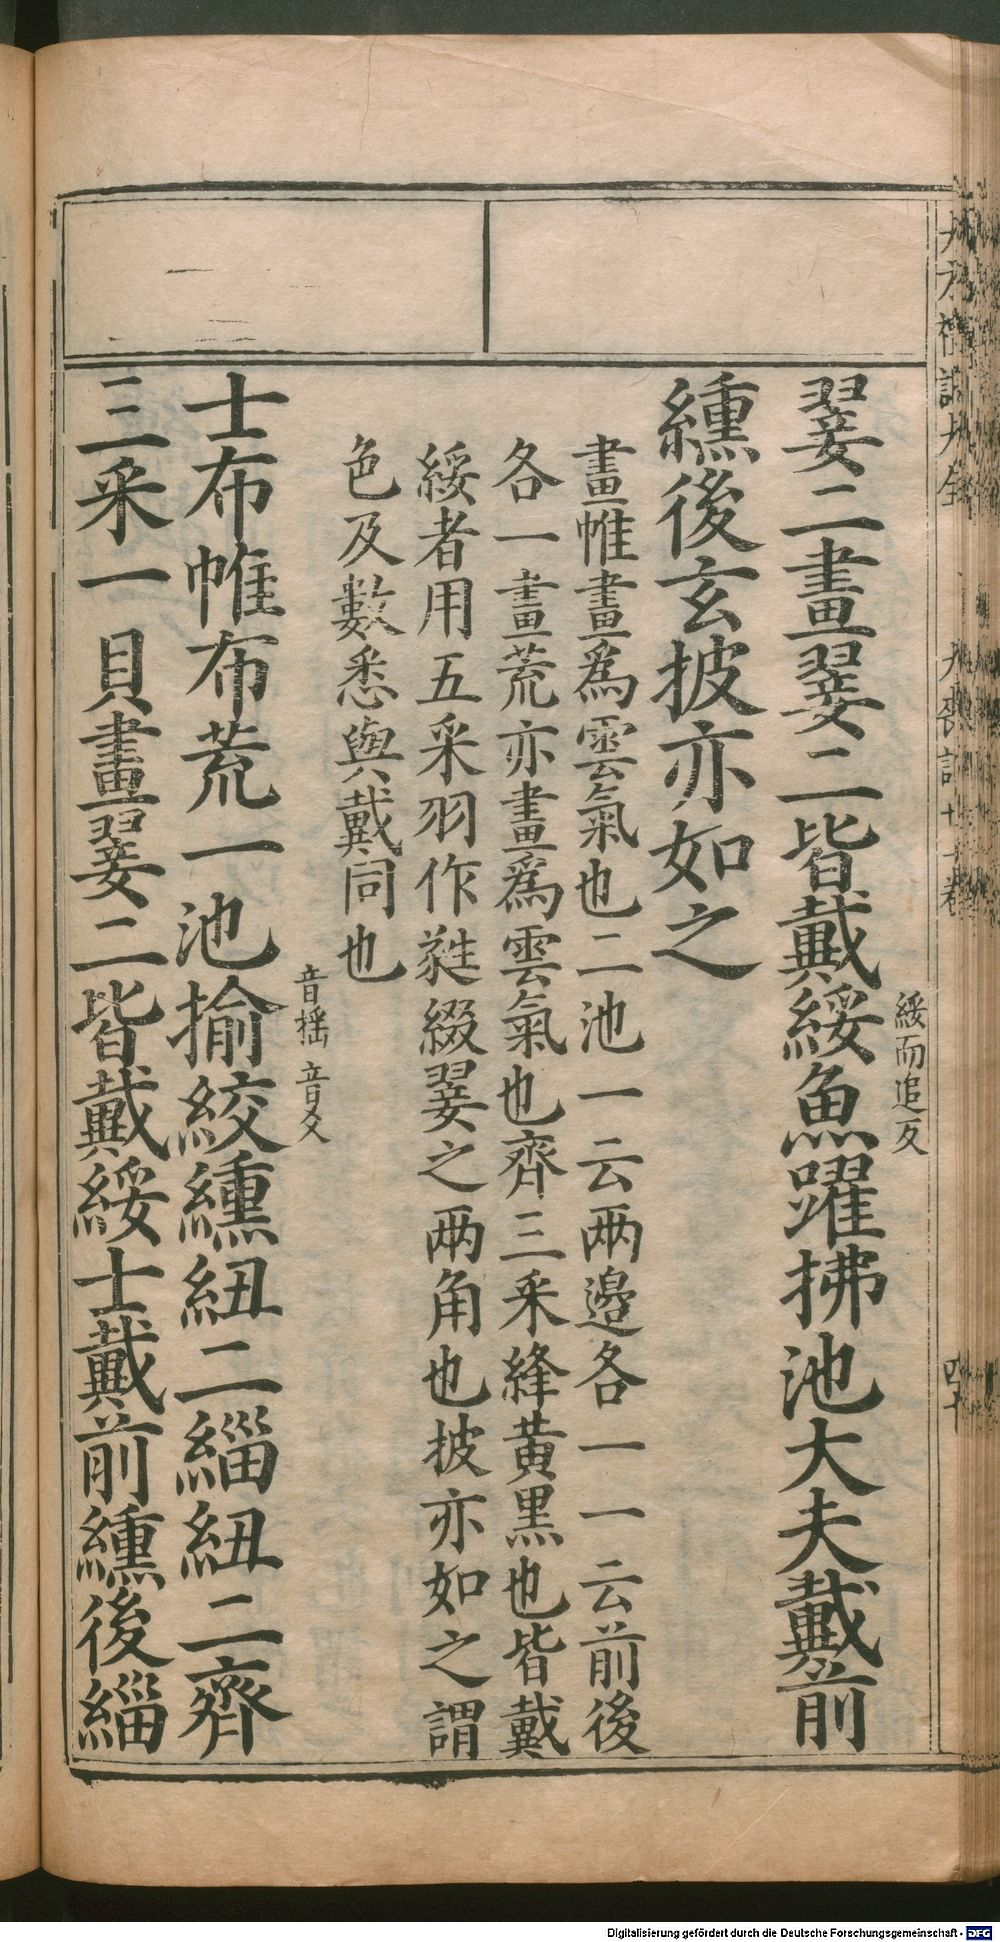 綏而追反
翣二畫翣二皆戴綏魚躍拂池大夫戴前
纁後玄披亦如之
畫帷畫爲雲氣也二池一云兩邊各一一云前後
各一畫荒亦畫爲雲氣也齊三采絳黃黑也皆戴
綏者用五采羽作蕤綴翣之兩角也披亦如之謂
色及數悉與戴同也
音揺 音爻
士布帷布荒一池揄絞纁紐二緇紐二齊
三采一貝畫翣二皆戴綏士戴前纁後緇
Digitalisierung gefördert durch die Deutsche Forschungsgemeinschaft - DFG